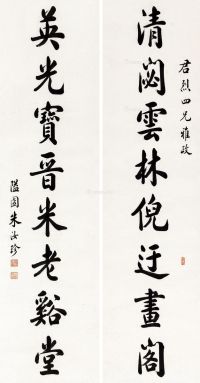 君烈四兄雅政
清閟雲林倪迂畫閣
英光寶晉米老谿堂
隘園朱汝珍